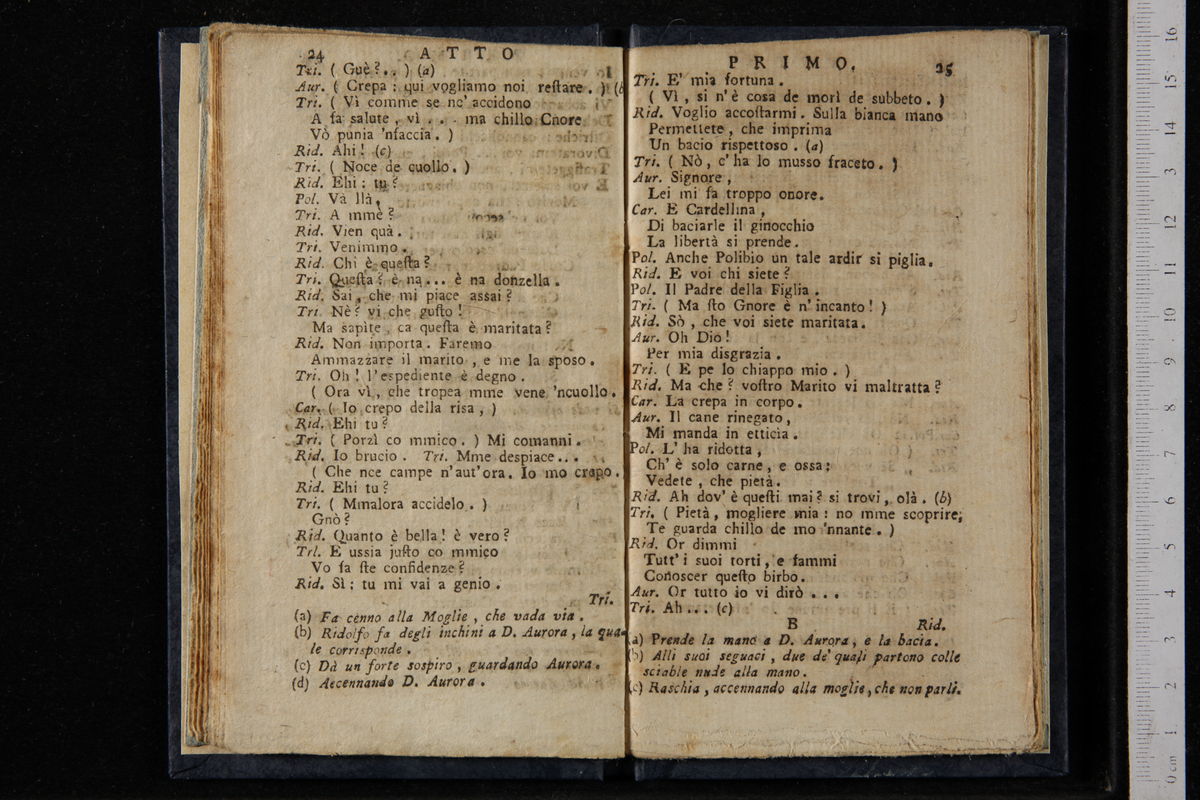 24 ATTO
Tri. ( Guè ? . . ) (a)
Aur. ( Crepa : qui vogliamo noi reſtare . ) (b
Tri. ( Vì comme se nc' accidono
A fa salute , vì . . . ma chillo Gnore
Vò punia 'nfaccia . )
Rid. Ahi ! (c)
Tri. ( Noce de cuollo . )
Rid. Ehi : tu ?
Pol. Và llà ,
Tri. A mmè ?
Rid. Vien quà .
Tri. Venimmo .
Rid. Chi è queſta ?
Tri. Queſta ? è na . . . è na donzella .
Rid. Sai , che mi piace assai ?
Tri. Nè ? vì che guſto !
Ma sapite , ca queſta è maritata ?
Rid. Non importa . Faremo
Ammazzare il marito , e me la sposo .
Tri. Oh ! l' espediente è degno .
( Ora vì , che tropea mme vene 'ncuollo .
Car. ( Io crepo della risa , )
Rid. Ehi tu ?
Tri. ( Porzì co mmico . ) Mi comanni .
Rid. Io brucio . Tri. Mme despiace . . .
( Che nce campe n' aut' ora . Io mo crepo .
Rid. Ehi tu ?
Tri. ( Mmalora accidelo . )
Gnò ?
Rid. Quanto è bella ! è vero ?
Tri. E ussia juſto co mmico
Vo fa ſte confidenze ?
Rid. Sì ; tu mi vai a genio .
Tri.
(a) Fa cenno alla Moglie , che vada via .
(b) Ridolfo fa degli inchini a D. Aurora , la qua-
le corrisponde .
(c) Dà un forte sospiro , guardando Aurora .
(d) Accennando D. Aurora .
PRIMO. 25
Tri. E' mia fortuna .
( Vì , si n' è cosa de morì de subbeto . )
Rid. Voglio accoſtarmi . Sulla bianca mano
Permettete , che imprima
Un bacio rispettoso . (a)
Tri. ( Nò , c' ha lo musso fraceto . )
Aur. Signore ,
Lei mi fa troppo onore .
Car. E Cardellina ,
Di baciarle il ginocchio
La libertà si prende .
Pol. Anche Polibio un tale ardir si piglia .
Rid. E voi chi siete ?
Pol. Il Padre della Figlia .
Tri. ( Ma ſto Gnore è n' incanto ! )
Rid. Sò , che voi siete maritata .
Aur. Oh Dio !
Per mia disgrazia .
Tri. ( E pe lo chiappo mio . )
Rid. Ma che ? voſtro Marito vi maltratta ?
Car. La crepa in corpo .
Aur. Il cane rinegato ,
Mi manda in etticia .
Pol. L' ha ridotta ,
Ch' è solo carne , e ossa ;
Vedete , che pietà .
Rid. Ah dov' è queſti mai ? si trovi , olà . (b)
Tri. ( Pietà , mogliere mia : no mme scoprire ,
Te guarda chillo de mo 'nnante . )
Rid. Or dimmi
Tutt' i suoi torti , e fammi
Conoscer queſto birbo .
Aur. Or tutto io vi dirò . . .
Tri. Ah . . . (c)
B Rid.
(a) Prende la mano a D. Aurora , e la bacia .
(b) Alli suoi seguaci , due de' quali partono colle
sciable nude alla mano .
(c) Raschia , accennando alla moglie , che non parli .
0 cm 1 2 3 4 5 6 7 8 9 10 11 12 13 14 15 16